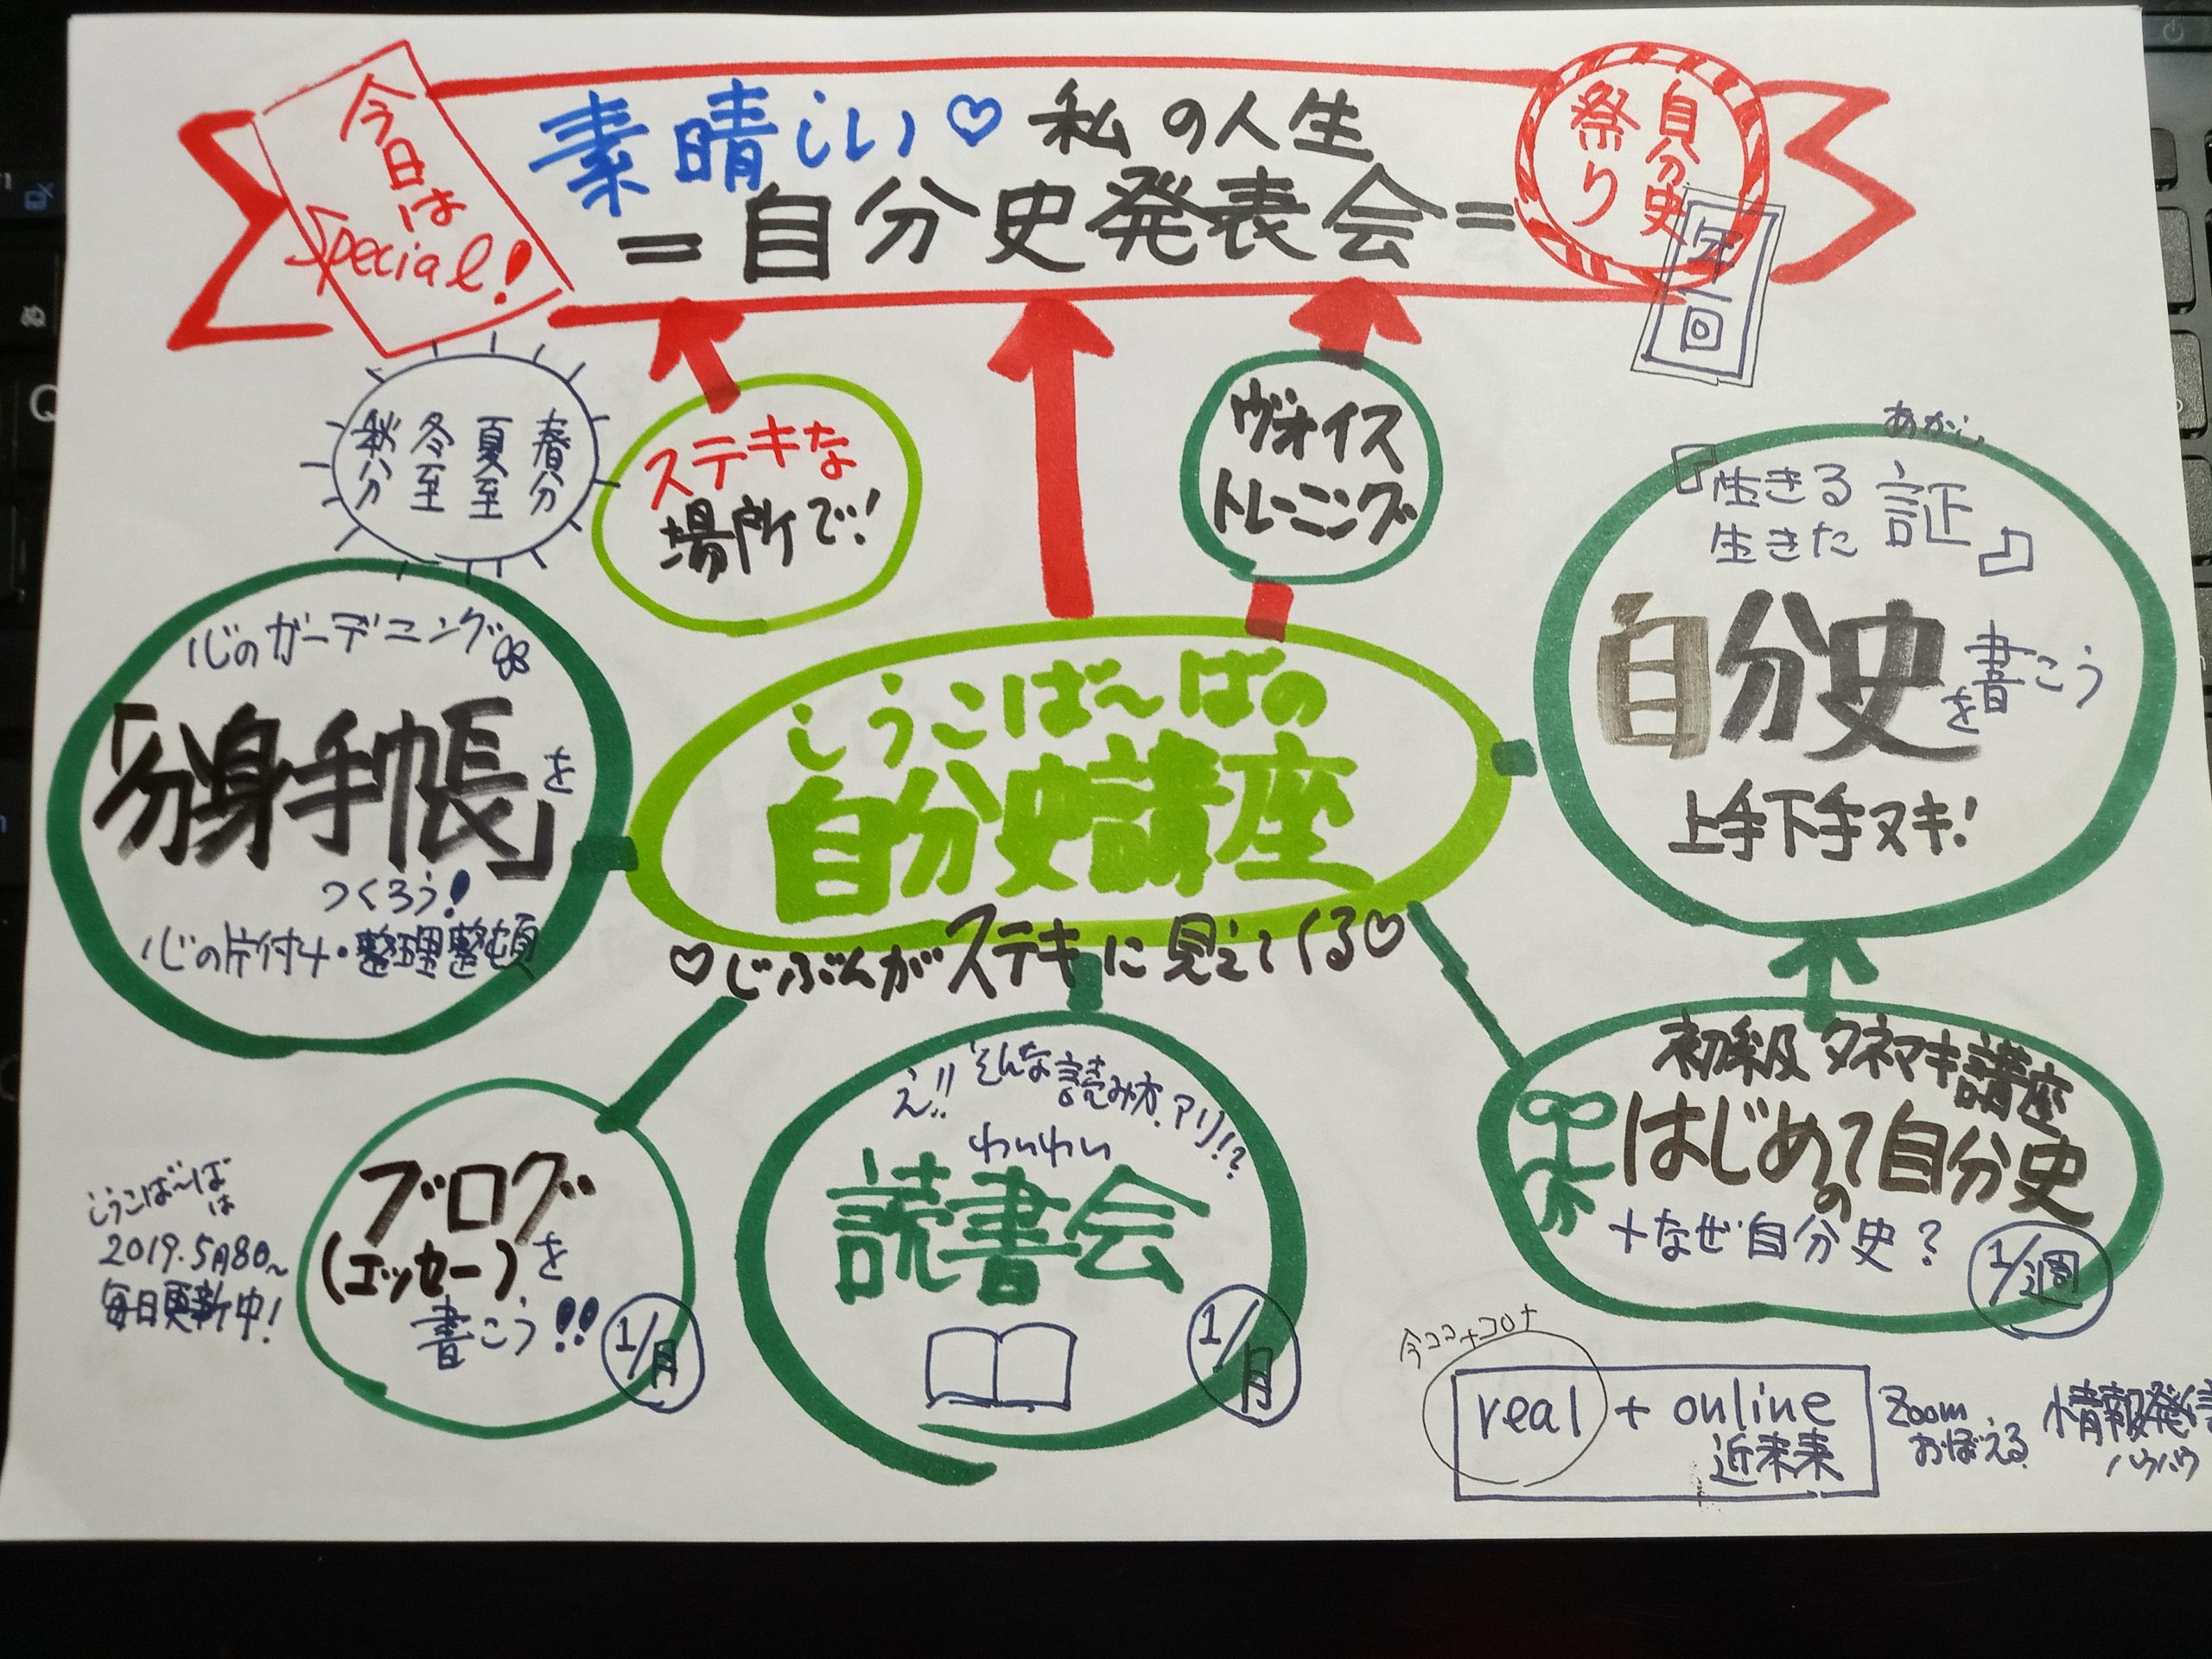 今日は
Special!
素晴しい♡私の人生
=自分史発表会=
自分史
祭り
年一回
春分
夏至
冬至
秋分
ステキな
場所で!
ヴォイス
トレーニング
あかし
『生きる
生きた 証』
自分史を書こう
上手下手ヌキ!
心のガーデニング
「分身手帳」を
つくろう!
心の片付け・整理整頓
しうこば〜ばの
自分史講座
♡じぶんがステキに見えてくる♡
初級 タネマキ講座
はじめての自分史
+なぜ自分史?
1/週
え!! そんな読み方、アリ!?
わいわい
読書会
1/月
ブログ
(エッセー)を
書こう!!
1/月
しうこば〜ば
は
2019.5月8日〜
毎日更新中!
real + online
近未来
Zoom
おぼえる
情報発信